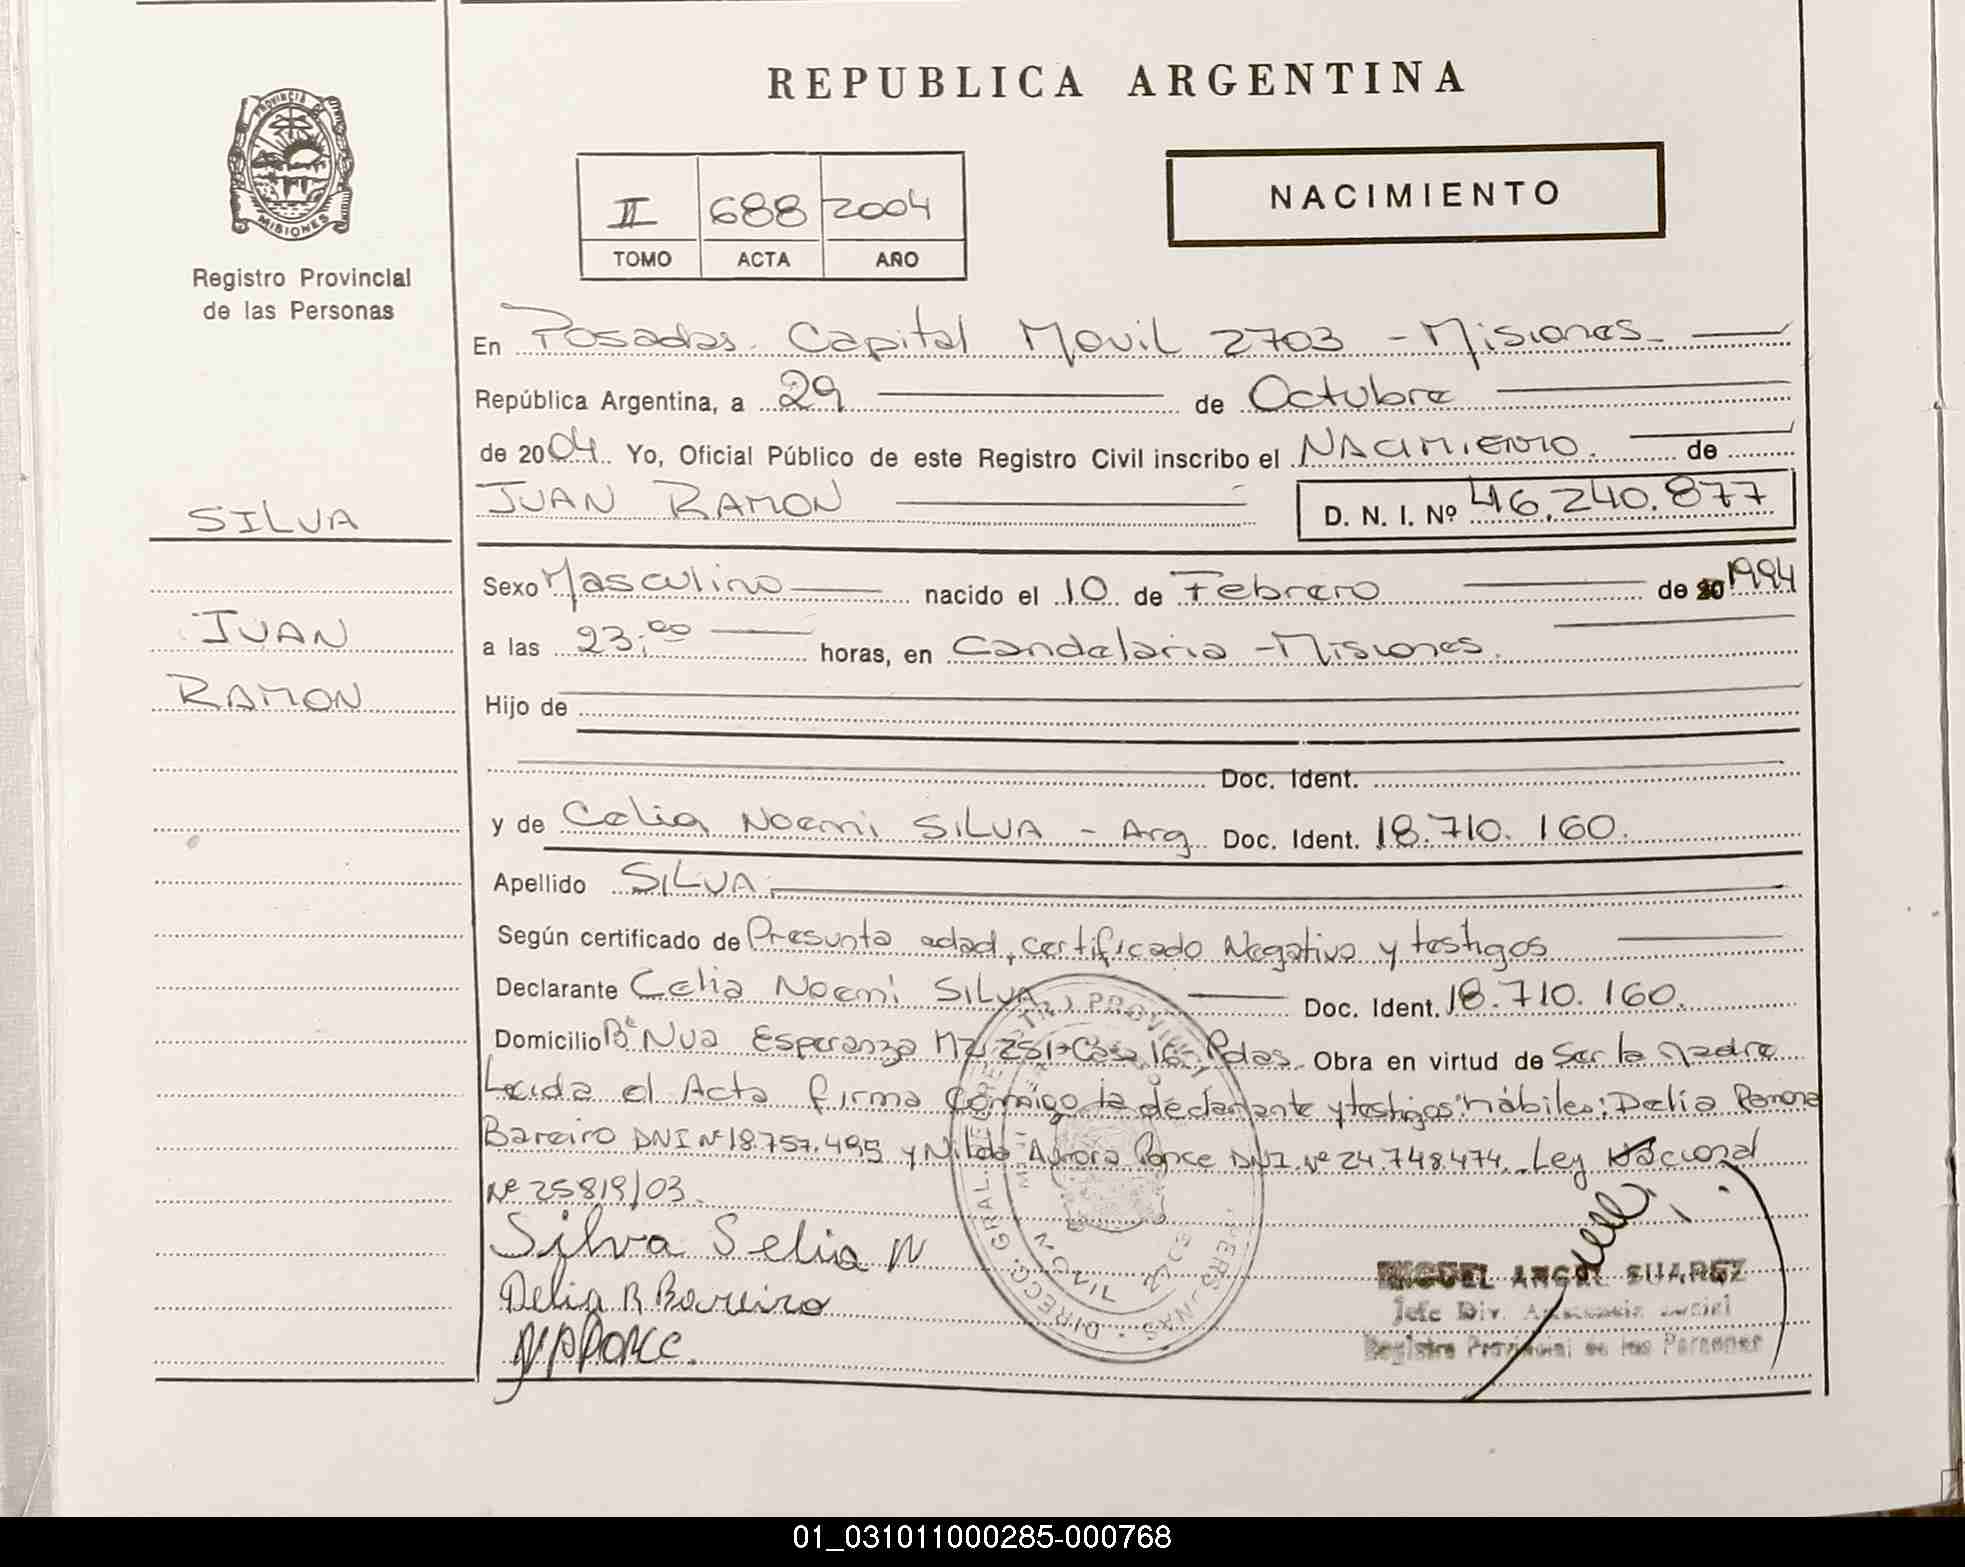 REPUBLICA ARGENTINA
PROVINCIA DE
MISIONES
Registro Provincial
de las Personas
NACIMIENTO
II 688 2004
TOMO ACTA AÑO
En Posadas Capital Movil 2703 - Misiones
República Argentina, a 29 de Octubre
de 2004 Yo, Oficial Público de este Registro Civil inscribo el NACIMIENTO. de
SILVA
JUAN RAMON D. N. I. Nº 46.240.877
Sexo Masculino nacido el 10 de Febrero de 20 1994
JUAN
a las 23:00 horas, en Candelaria - Misiones.
RAMON
Hijo de
Doc. Ident.
y de Celia Noemi SILVA - Arg Doc. Ident. 18.710.160.
Apellido SILVA.
Según certificado de Presunta edad, certificado Negativo y testigos
Declarante Celia Noemi SILVA Doc. Ident. 18.710.160.
Domicilio Bº Nva Esperanza Mz 251 Casa 16 - Pdas. Obra en virtud de Ser la Madre
Leida el Acta firma Conmigo la declarante y testigos hábiles: Delia Ramona
Bareiro DNI Nº 18.757.495 y Nilda Aurora Ponce DNI Nº 24.748.474. Ley Nacional
Nº 25819/03.
Silva Selia N
Delia R Bareiro
MIGUEL ANGEL SUAREZ
Jefe Div. Asistencia Social
Registro Provincial de las Personas
01_031011000285-000768